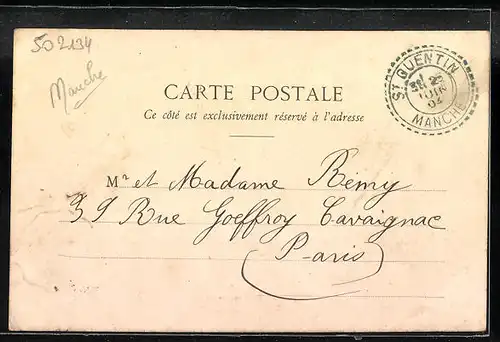 502134
Manche
CARTE POSTALE
Ce côté est exclusivement réservé à l'adresse
ST QUENTIN
JUIN
04
MANCHE
Mr et Madame Rémy
39 Rue Goeffroy Cavaignac
Paris